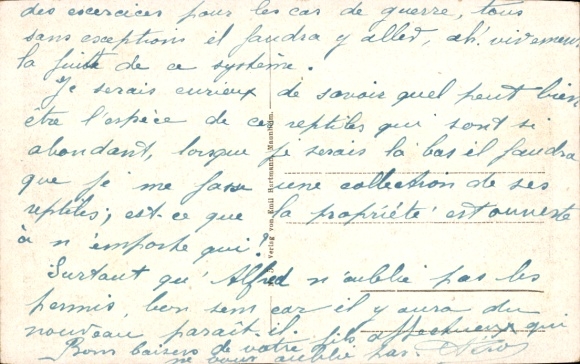 des excercices pour les cas de guerre, tous
sans exceptions il faudra y aller, ah! vivement
la fuite de ce système.
Je serais curieux de savoir quel peut bien
être l'espèce de ces reptiles qui sont si
abondant, lorsque je serais là bas il faudra
que je me fasse une collection de ses
reptiles; est-ce que la propriété est ouverte
à n'emporte qui?
Surtout qu'Alfred n'oublie pas les
permis, bon sem car il y aura du
nouveau parait-il.
Bons baisers de votre fils affectueux qui
ne vous oublie pas.
Verlag von Emil Hartmann, Mannheim.